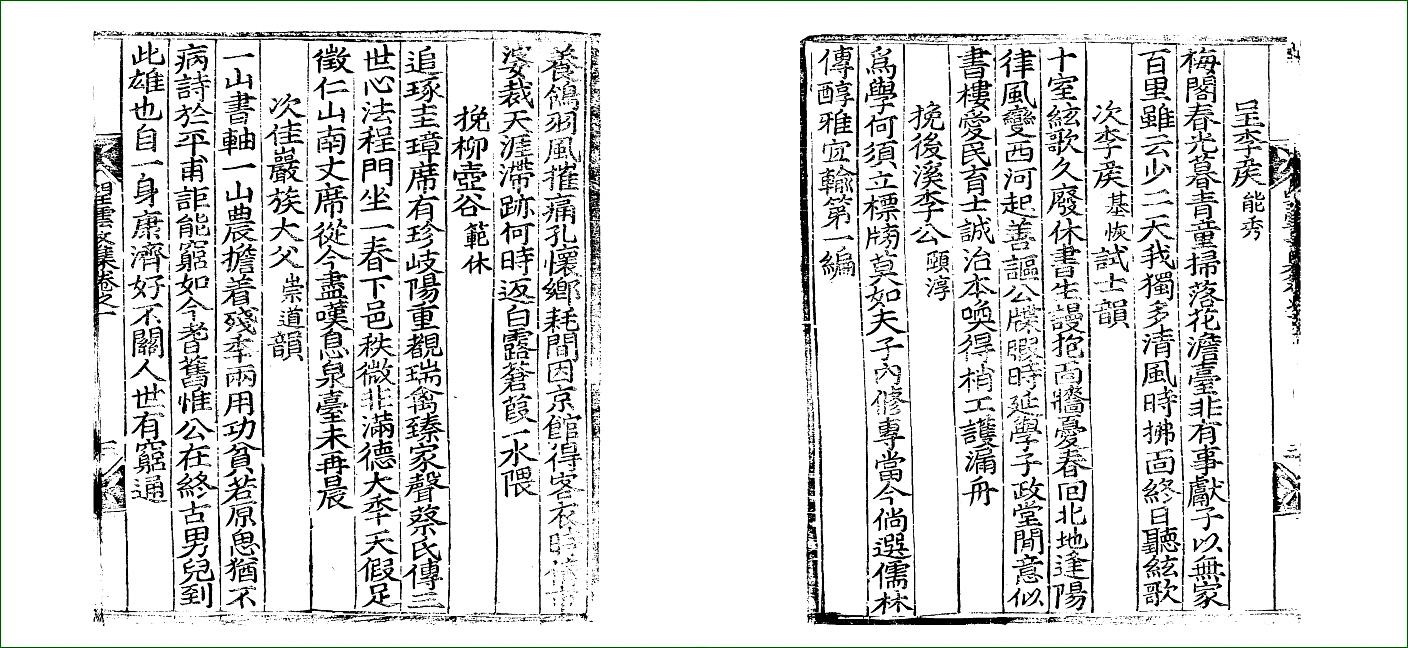 呈李矦能秀
梅閣春光暮青童掃落花澹臺非有事獻子以無家
百里雖云少二天我獨多清風時拂面終日聽絃歌
次李矦基恢試士韻
十室絃歌久廢休書生謾抱面牆憂春回北地逢陽
律風變西河起善謳公牒暇時延學子政堂閒意似
書樓愛民育士誠治本喚得梢工護漏舟
挽後溪李公頤淳
爲學何須立標牓莫如夫子內修專當今倘選儒林
傳醇雅宜輸第一編
養鴿羽風摧痛孔懷鄉耗間因京館得客衣時
婆裁天涯滯跡何時返白露蒼葭一水隈
挽柳壺谷範休
追琢圭璋席有珍岐陽重覩瑞禽臻家聲蔡氏傳三
世心法程門坐一春下邑秩微非滿德大秊天假足
徵仁山南丈席從今盡嘆息泉臺未再晨
次佳巖族大父崇道韻
一山書軸一山農擔着殘秊兩用功貧若原思猶不
病詩於平甫詎能窮如今耆舊惟公在終古男兒到
此雄也自一身康濟好不關人世有窮通
望雲文集卷之一